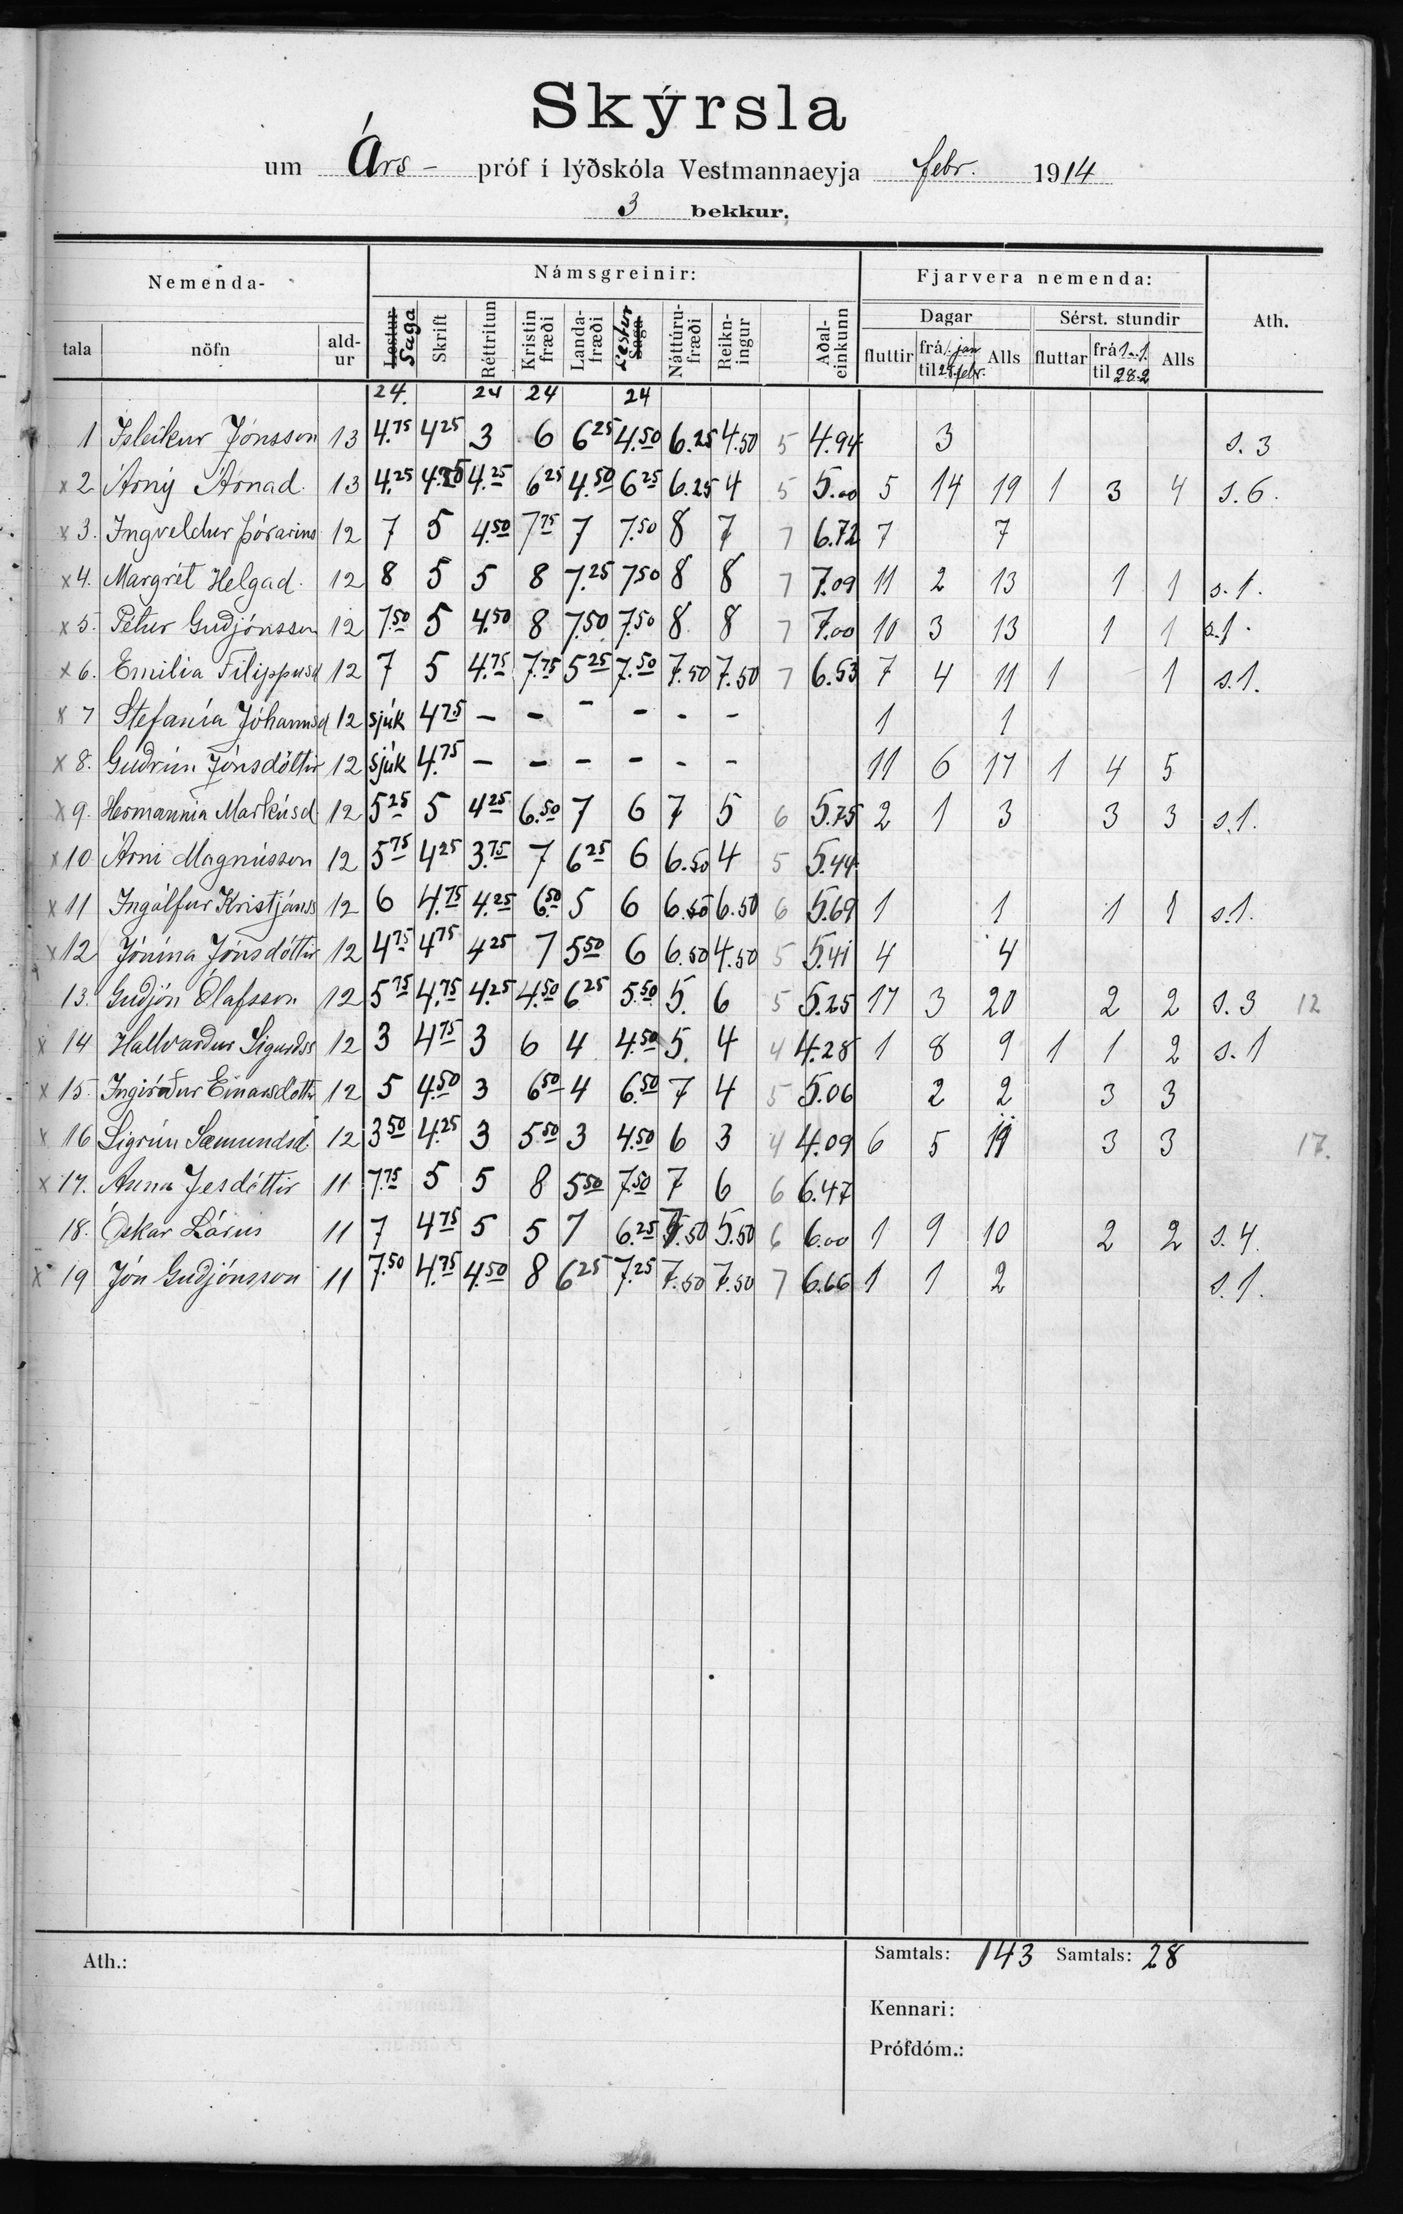 Skýrsla
um Árs- próf í lýðskóla Vestmannaeyja febr. 1914
3 bekkur.
Nemenda- Námsgreinir: Fjarvera nemenda: Ath.
Dagar Sérst. stundir
tala nöfn ald-ur Lestur Saga Skrift Réttritun Kristinfræði Landafræði Lestur Saga Náttúrufræði Reikningur Aðaleinkunn fluttir frá 1. jan til 28 febr. Alls fluttar frá 1.-1. til 28.2 Alls
24. 24 24 24
1 Ísleikur Jónsson 13 4.75 4.25 3 6 6.25 4.50 6.25 4.50 5 4.94 3 s. 3
x 2 Árný Árnad. 13 4.25 4.25 6.25 4.50 6.25 6.25 4 5 5.00 5 14 19 1 3 4 s. 6.
x 3. Ingveldur Þórarins 12 7 5 4.50 7.75 7 7.50 8 7 7 6.72 7 7
x 4. Margrét Helgad. 12 8 5 5 8 7.25 7.50 8 8 7 7.09 11 2 13 1 1 s. 1.
x 5. Pétur Guðjónsson 12 7.50 5 4.50 8 7.50 7.50 8 8 7 7.00 10 3 13 1 1 s.1.
x 6. Emilía Filippusd 12 7 5 4.75 7.75 5.25 7.50 7.50 7.50 7 6.53 7 4 11 1 1 s.1.
x 7 Stefanía Jóhannsd 12 sjúk 4.75 – – – – – – 1 1
x 8. Guðrún Jónsdóttir 12 sjúk 4.75 – – – – – – 11 6 17 1 4 5
x 9. Hermannía Markúsd 12 5.25 5 4.25 6.50 7 6 7 5 6 5.75 2 1 3 3 3 s.1.
x 10 Árni Magnússon 12 5.75 4.25 3.75 7 6.25 6 6.50 4 5 5.44
x 11 Ingólfur Kristjánss 12 6 4.75 4.25 6.50 5 6 6.50 6.50 6 5.69 1 1 1 1 s.1.
x 12 Jónína Jónsdóttir 12 4.75 4.75 4.25 7 5.50 6 6.50 4.50 5 5.41 4 4
13. Guðjón Ólafsson 12 5.75 4.75 4.25 4.50 6.25 5.50 5. 6 5 5.25 17 3 20 2 2 s. 3 12
x 14 Hallvarður Sigurðss 12 3 4.75 3 6 4 4.50 5. 4 4 4.28 1 8 9 1 1 2 s. 1
x 15. Ingiríður Einarsdóttir 12 5 4.50 3 6.50 4 6.50 7 4 5 5.06 2 2 3 3
x 16 Sigrún Sæmundsd. 12 3.50 4.25 3 5.50 3 4.50 6 3 4 4.09 6 5 11 3 3 17.
x 17. Anna Jesdóttir 11 7.75 5 5 8 5.50 7.50 7 6 6 6.47
18. Óskar Lárus 11 7 4.75 5 5 7 6.25 7.50 5.50 6 6.00 1 9 10 2 2 s. 4.
x 19 Jón Guðjónsson 11 7.50 4.75 4.50 8 6.25 7.25 7.50 7.50 7 6.66 1 1 2 s. 1.
Ath.: Samtals: 143 Samtals: 28
Kennari:
Prófdóm.: